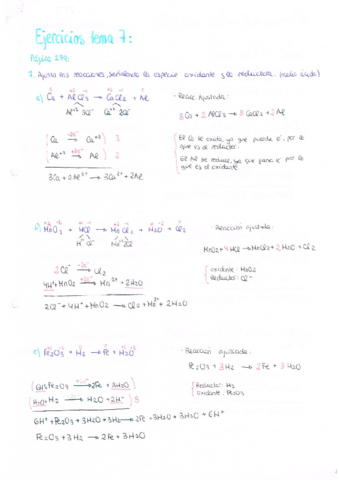 Ejercicios tema 7:
Página 279:
7. Ajusta las reacciones, señalando la especie oxidante y la reductora. (medio ácido)
a) Ca + AlCl₃ → CaCl₂ + Al
Al⁺³ 3Cl⁻ Ca⁺² 2Cl⁻
- Reacc. Ajustada:
3Ca + 2AlCl₃ → 3CaCl₂ + 2Al
Ca → Ca⁺² 3
Al⁺³ → Al 2
3Ca + 2Al³⁺ → 3Ca²⁺ + 2Al
El Ca se oxida, ya que pierde e⁻, por lo
que es el reductor.
El Al se reduce, ya que gana e⁻ por lo
que es el oxidante.
b) MnO₂ + HCl → MnCl₂ + H₂O + Cl₂
H⁺ Cl⁻ Mn⁺² 2Cl⁻
- Reacción ajustada:
MnO₂ + 4HCl → MnCl₂ + 2H₂O + Cl₂
2Cl⁻ → Cl₂
4H⁺ + MnO₂ → Mn²⁺ + 2H₂O
2Cl⁻ + 4H⁺ + MnO₂ → Cl₂ + Mn²⁺ + 2H₂O
Oxidante: MnO₂
Reductor: Cl⁻
c) Fe₂O₃ + H₂ → Fe + H₂O
- Reacción ajustada:
Fe₂O₃ + 3H₂ → 2Fe + 3H₂O
6H⁺ + Fe₂O₃ → 2Fe + 3H₂O
H₂O + H₂ → H₂O + 2H⁺ 3
Reductor: H₂
Oxidante: Fe₂O₃
6H⁺ + Fe₂O₃ + 3H₂O + 3H₂ → 2Fe + 3H₂O + 3H₂O + 6H⁺
Fe₂O₃ + 3H₂ → 2Fe + 3H₂O